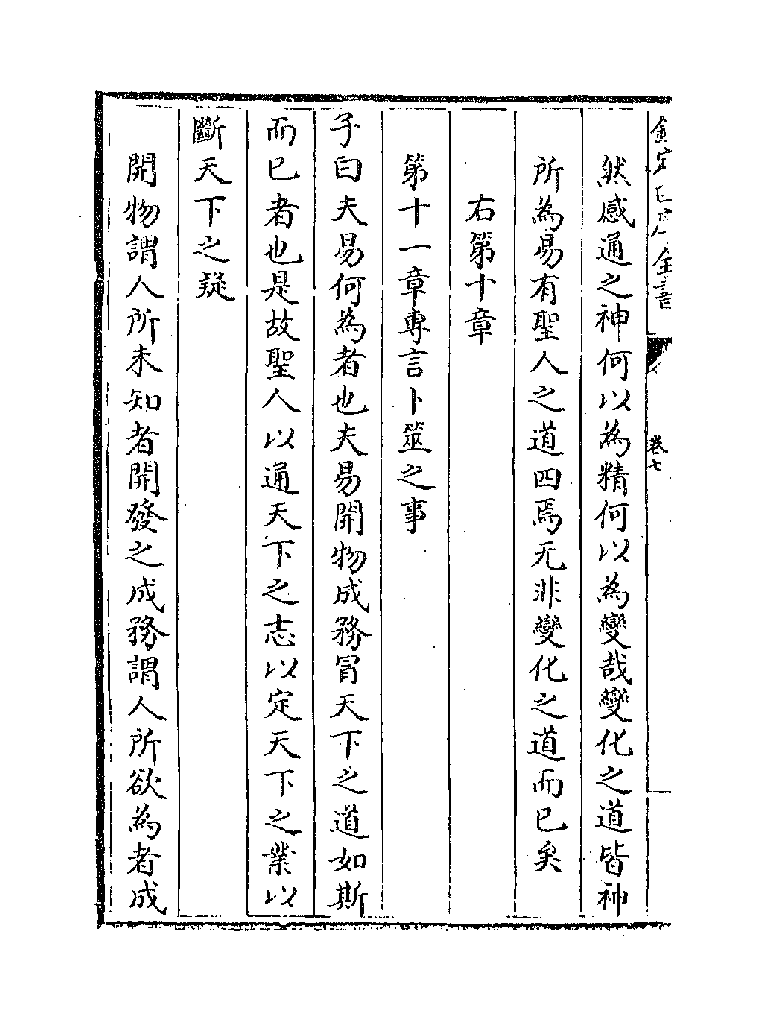 欽定四庫全書
卷七
然感通之神何以為精何以為變哉變化之道皆神
所為易有聖人之道四焉无非變化之道而已矣
右第十章
第十一章專言卜筮之事
子曰夫易何為者也夫易開物成務冒天下之道如斯
而已者也是故聖人以通天下之志以定天下之業以
斷天下之疑
開物謂人所未知者開發之成務謂人所欲為者成